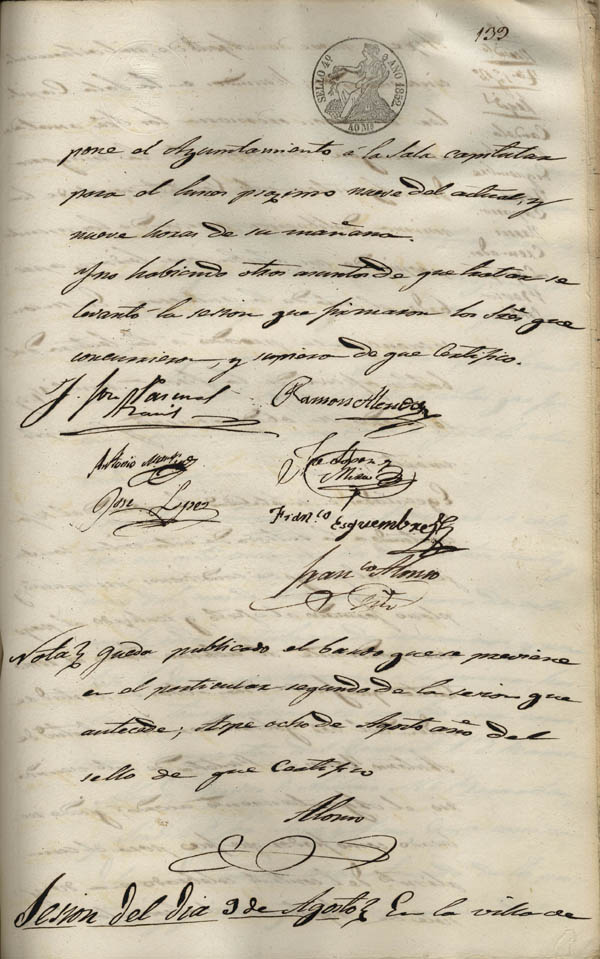 139
SELLO 4º AÑO 1852
40 Ms
pone el Ayuntamiento á la Sala capitular
para el lunes proximo nueve del actual, y
nueve horas de su mañana.
Y no habiendo otros asuntos de que tratar se
levantó la sesion que firmaron los Sres que
concurrieron, y supiera de que Certifico.
J. José Pascual
Ramon
Antonio
José Lopez
Lopez y
Mira
Franco Esquembre
Franco Alonso
Srio
Nota Queda publicado el bando que se previene
en el particular segundo de la sesion que
antecede; Aspe ocho de Agosto año del
sello de que Certifico
Alonso
Sesion del dia 9 de Agosto En la villa de